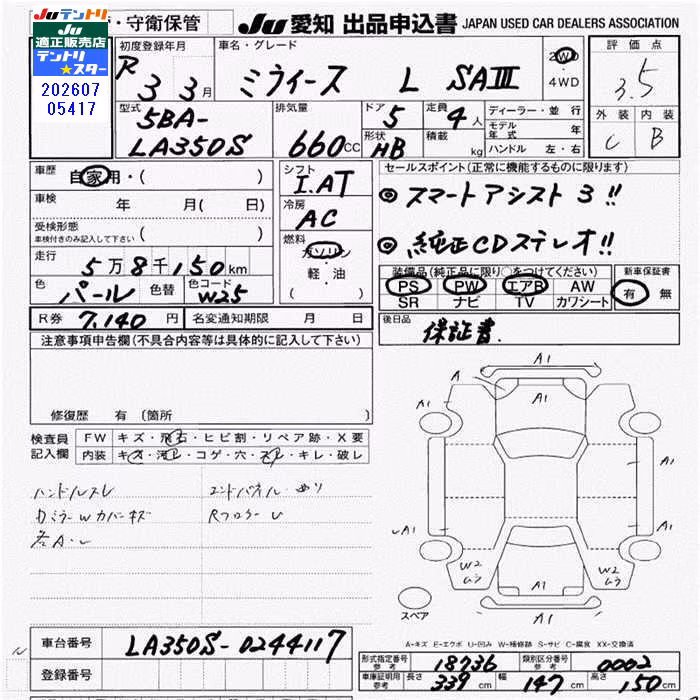 Juテントリ
Ju
適正販売店
テントリ
★スター
202607
05417
・守衛保管
Ju 愛知 出品申込書 JAPAN USED CAR DEALERS ASSOCIATION
初度登録年月
R 3 3月
車名・グレード
ミライース L SAⅢ
2WD
4WD
評価点
3.5
外装 内装
C B
型式
5BA-
LA350S
排気量
660CC
ドア 5
形状 HB
定員 4人
積載 kg
ディーラー・並行
モデル年式 年
ハンドル 左・右
車歴
自家用・( )
車検 年 月( 日)
受検形態
車検付きのみ記入して下さい ( )
走行
5万8千150km
色 パール 色替 色コード W25
シフト
I.AT
冷房
AC
燃料
ガソリン
軽・油
( )
セールスポイント(正常に機能するものに限ります)
◎ スマートアシスト3!!
◎ 純正CDステレオ!!
装備品(純正品に限り○をつけてください)
PS PW エアB AW
SR ナビ TV カワシート
新車保証書
有 無
R券 7,140円 名変通知期限 月 日
後日品
保証書.
注意事項申告欄(不具合内容等は具体的に記入して下さい)
修復歴 有 〔箇所 〕
検査員
記入欄
FW キズ・飛石・ヒビ割・リペア跡・X要
内装 キズ・汚レ・コゲ・穴・スレ・キレ・破レ
ハンドルスレ
エンドパネル・ヌリ
カミラーWカバーキズ
Rフロアー U
各A・U
A1
A
A1
A1
A1
A1
A1
W2
ムラ
A1
W2
ムラ
A1
スペア
A-キズ E-エクボ U-凹み W-補修跡 S-サビ C-腐食 XX-交換済
車台番号 LA350S-0244117
登録番号
形式指定番号
参考
18736
類別区分番号
参考
0002
車庫証明用
参考
長さ 339cm 幅 147cm 高さ 150cm